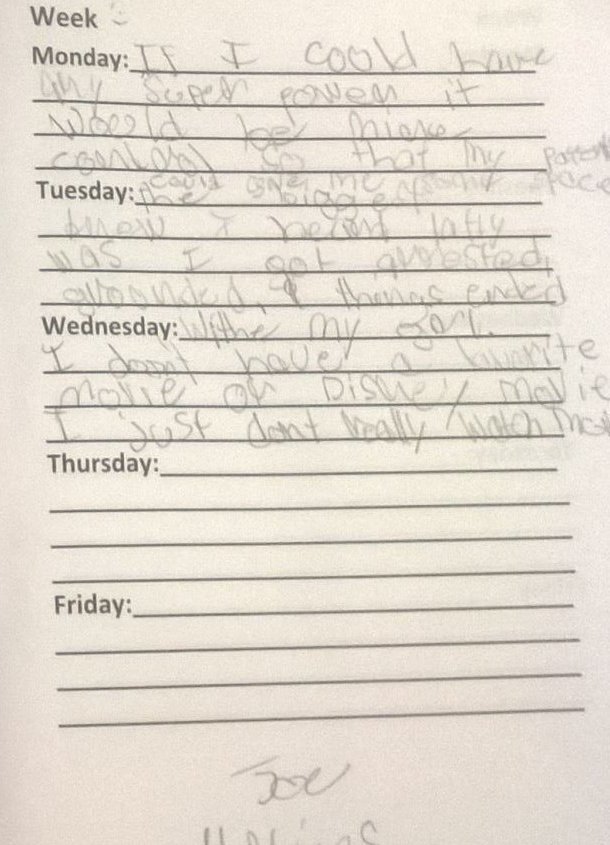 Week
Monday: If I could have
any super power it
would be mind
control so that my parents
could give me some space
Tuesday: the biggest
I heard latly
was I got arrested,
grounded, & things ended
Wednesday: withe my girl.
I doont have a favorite
movie or Disney movie
I just dont really watch mov
Thursday:
Friday:
Joe